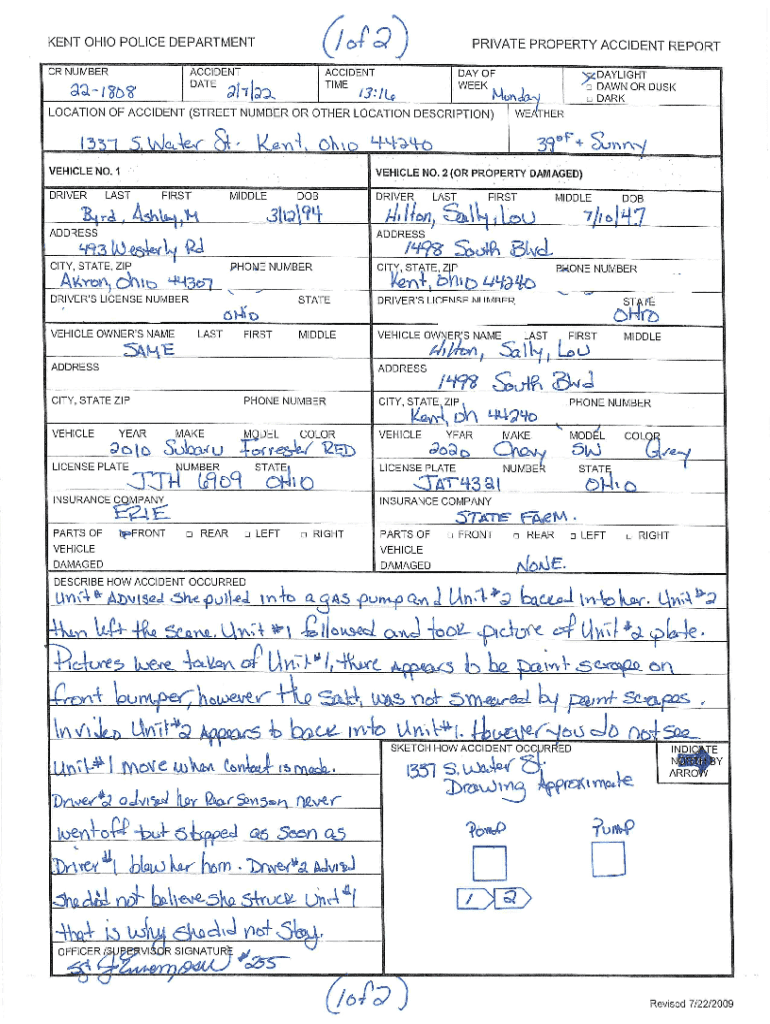 (1 of 2)
KENT OHIO POLICE DEPARTMENT PRIVATE PROPERTY ACCIDENT REPORT
CR NUMBER ACCIDENT DATE ACCIDENT TIME DAY OF WEEK DAYLIGHT
DAWN OR DUSK
DARK
22-1808 2/7/22 13:16 Monday
LOCATION OF ACCIDENT (STREET NUMBER OR OTHER LOCATION DESCRIPTION) WEATHER
1337 S. Water St. Kent, Ohio 44240 39°F + Sunny
VEHICLE NO. 1 VEHICLE NO. 2 (OR PROPERTY DAMAGED)
DRIVER LAST FIRST MIDDLE DOB DRIVER LAST FIRST MIDDLE DOB
Byrd, Ashley, M 3/12/94 Hilton, Sally, Lou 7/10/47
ADDRESS ADDRESS
493 Westerly Rd 1498 South Blvd.
CITY, STATE, ZIP PHONE NUMBER CITY, STATE, ZIP PHONE NUMBER
Akron, Ohio 44307 Kent, Ohio 44240
DRIVER'S LICENSE NUMBER STATE DRIVER'S LICENSE NUMBER STATE
OHIO OHIO
VEHICLE OWNER'S NAME LAST FIRST MIDDLE VEHICLE OWNER'S NAME LAST FIRST MIDDLE
SAME Hilton, Sally, Lou
ADDRESS ADDRESS
1498 South Blvd
CITY, STATE ZIP PHONE NUMBER CITY, STATE, ZIP PHONE NUMBER
Kent, Oh 44240
VEHICLE YEAR MAKE MODEL COLOR VEHICLE YEAR MAKE MODEL COLOR
2010 Subaru Forrester RED 2020 Chevy SW Grey
LICENSE PLATE NUMBER STATE LICENSE PLATE NUMBER STATE
JJH 6909 OHIO JAT4321 OHIO
INSURANCE COMPANY INSURANCE COMPANY
ERIE STATE FARM.
PARTS OF VEHICLE DAMAGED FRONT REAR LEFT RIGHT PARTS OF VEHICLE DAMAGED FRONT REAR LEFT RIGHT
NONE.
DESCRIBE HOW ACCIDENT OCCURRED
Unit # Advised she pulled into a gas pump and Unit #2 backed into her. Unit #2
then left the scene. Unit #1 followed and took picture of Unit #2 plate.
Pictures were taken of Unit #1, there appears to be paint scrape on
front bumper, however the salt, was not smeared by paint scrapes.
In video Unit #2 Appears to back into Unit #1. However you do not see
Unit #1 move when contact is made.
Driver #2 advised her Rear Sensors never
went off but stopped as soon as
Driver #1 blew her horn. Driver #2 Advised
she did not believe she struck Unit #1
that is why she did not stay.
SKETCH HOW ACCIDENT OCCURRED INDICATE NORTH BY ARROW
1337 S. Water St.
Drawing Approximate
Pump Pump
1 2
OFFICER/SUPERVISOR SIGNATURE
#255
(1 of 2)
Revised 7/22/2009